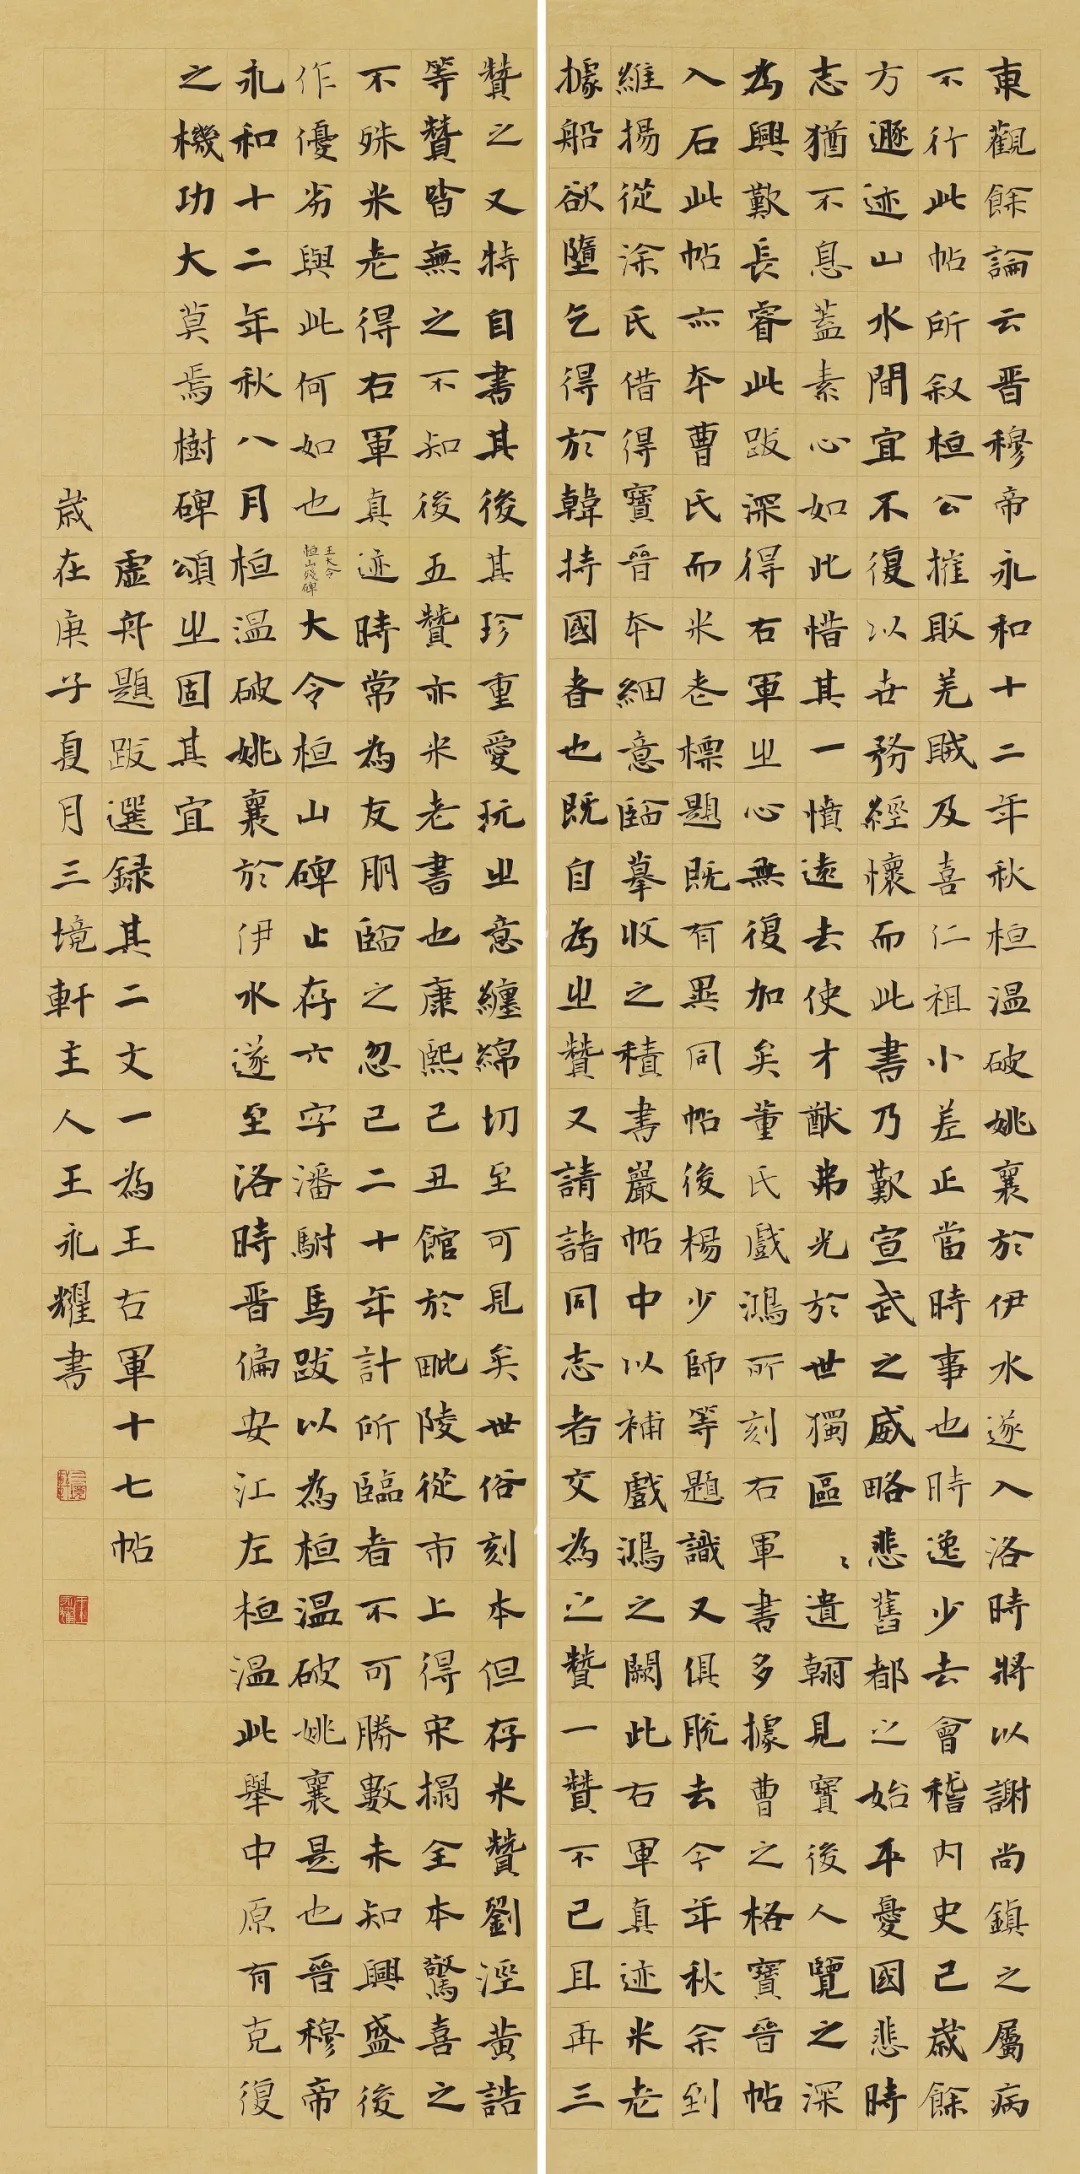 東觀餘論云晋穆帝永和十二年秋桓温破姚襄於伊水遂入洛時將以謝尚鎮之屬病
不行此帖所叙桓公摧敗羌賊及喜仁祖小差正當時事也時逸少去會稽内史已歲餘
方遯迹山水間宜不復以世務經懷而此書乃歎宣武之威略悲舊都之始平憂國悲時
志猶不息蓋素心如此惜其一憤遠去使才猷弗光於世獨區〻遺翰見寶後人覽之深
為興歎長睿此跋深得右軍之心無復加矣董氏戲鴻所刻右軍書多據曹之格寶晉帖
入石此帖亦本曹氏而米老標題既有異同帖後楊少師等題識又俱脱去今年秋余到
維揚從涂氏借得寶晉本細意臨摹收之積書巖帖中以補戲鴻之闕此右軍真迹米老
據船欲墮乞得於韓持國者也既自為之贊又請諸同志者交為之贊一贊不已且再三
贊之又特自書其後其珍重愛玩之意纏綿切至可見矣世俗刻本但存米贊劉涇黄誥
等贊皆無之不知後五贊亦米老書也康熙己丑館於毗陵從市上得宋搨全本驚喜之
不殊米老得右軍真迹時常為友朋臨之忽已二十年計所臨者不可勝數未知興盛後
作優劣與此何如也王大令桓山殘碑大令桓山碑止存六字潘駙馬跋以為桓温破姚襄是也晉穆帝
永和十二年秋八月桓温破姚襄於伊水遂至洛時晋偏安江左桓温此舉中原有克復
之機功大莫焉樹碑頌之固其宜
虚舟題跋選録其二文一為王右軍十七帖
歲在庚子夏月三境軒主人王永耀書